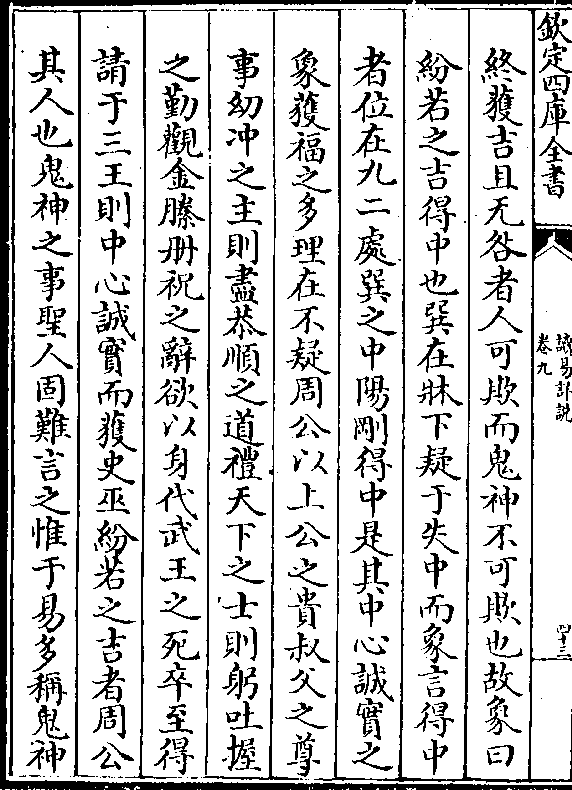 欽定四庫全書
讀易詳説
卷九
四十三
終獲吉且无咎者人可欺而鬼神不可欺也故象曰
紛若之吉得中也巽在牀下疑于失中而象言得中
者位在九二處巽之中陽剛得中是其中心誠實之
象獲福之多理在不疑周公以上公之貴叔父之尊
事幼冲之主則盡恭順之道禮天下之士則躬吐握
之勤觀金縢册祝之辭欲以身代武王之死卒至得
請于三王則中心誠實而獲史巫紛若之吉者周公
其人也鬼神之事聖人固難言之惟于易多稱鬼神